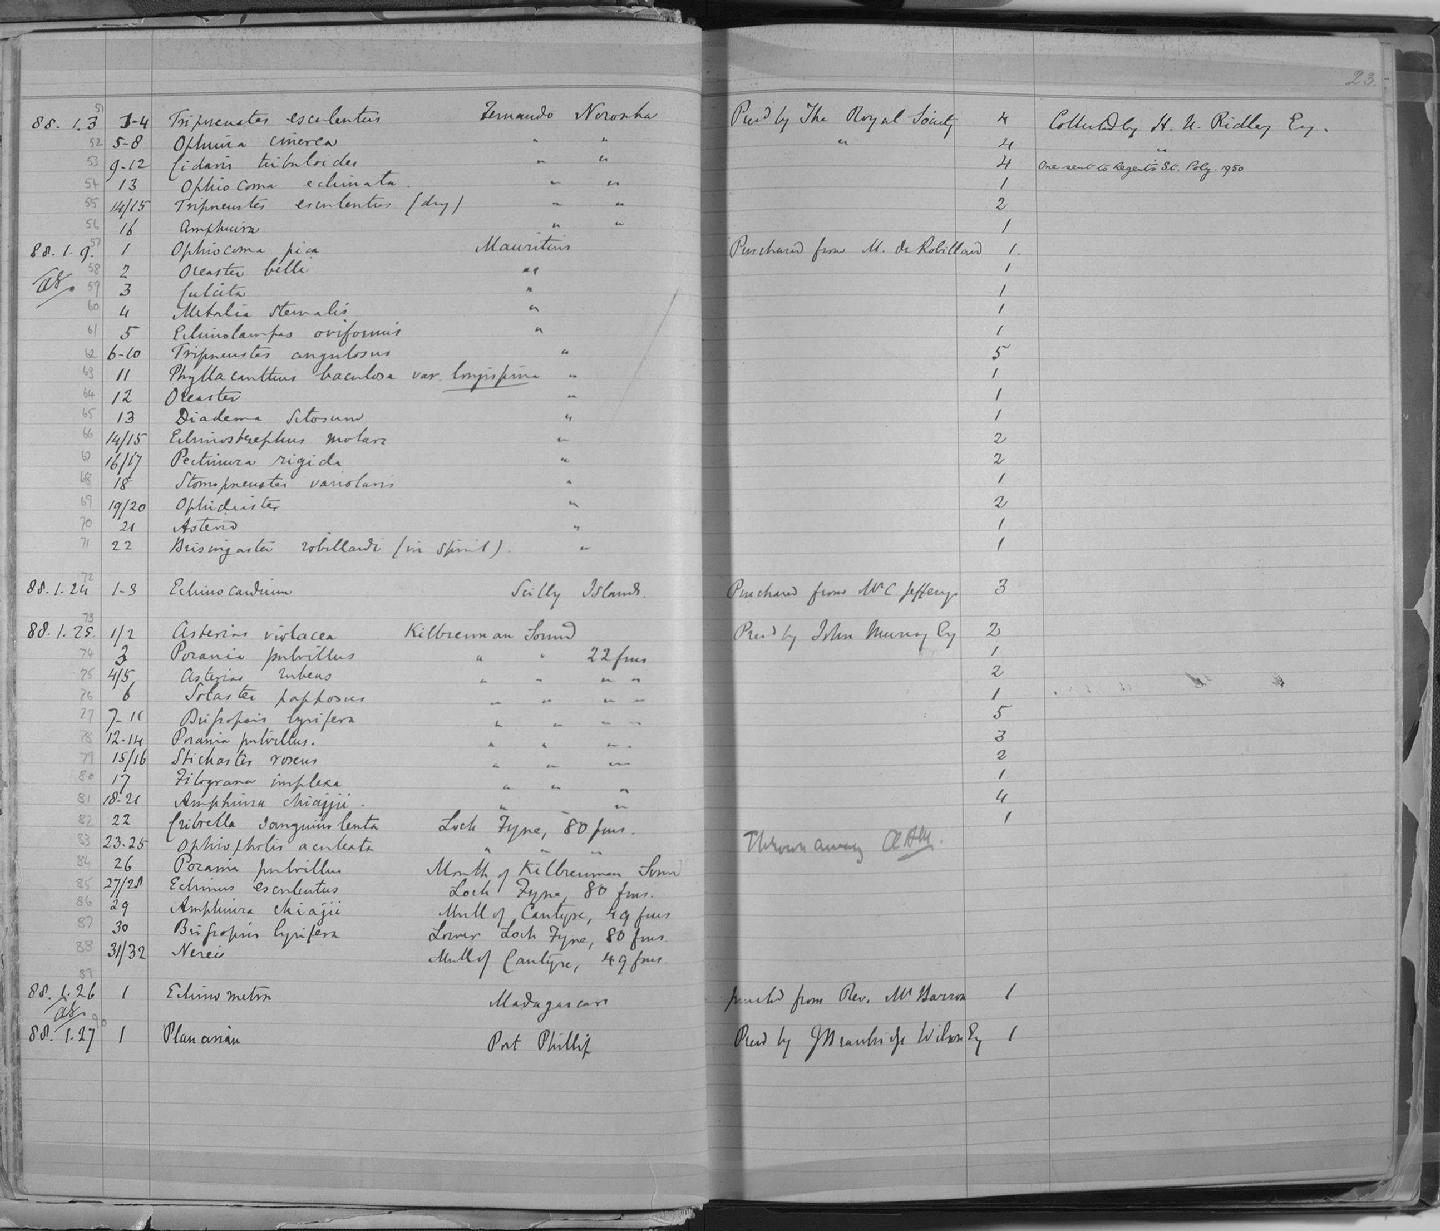 23
51
88. 1. 3 1-4 Tripneustes esculentus Fernando Noronha Pres'd by The Royal Society 4 Collected by H. N. Ridley Esq.
52 5-8 Ophiura cinerea " " " 4 "
53 9-12 Cidaris tribuloides " " 4 One sent to Regents St. Poly. 1950
54 13 Ophiocoma echinata. " " 1
55 14/15 Tripneustes esculentus (dry) " " 2
56 16 Amphiura " " 1
57
88. 1. 9. 1 Ophiocoma pica Mauritius Purchased from M. de Robillard 1.
58 2 Oreaster belli " 1
59 3 Culcita " 1
60 4 Metalia sternalis " 1
61 5 Echinolampas oviformis " 1
62 6-10 Tripneustes angulosus " 5
63 11 Phyllacanthus baculosa var. longispina " 1
64 12 Oreaster " 1
65 13 Diadema setosum " 1
66 14/15 Echinostrephus molare " 2
67 16/17 Pectinura rigida " 2
68 18 Stomopneustes variolaris " 1
69 19/20 Ophidiaster " 2
70 21 Asterid " 1
71 22 Brisingaster robillardi (in Spirit). " 1
72
88. 1. 24 1-3 Echinocardium Scilly Islands. Purchased from Mr C Jefferys 3
73
88. 1. 25. 1/2 Asterias violacea Kilbrennan Sound Pres'd by John Murray Esq 2
74 3 Porania pulvillus " " 22 fms 1
75 4/5 Asterias rubens " " " " 2
76 6 Solaster papposus " " " " 1
77 7-11 Brissopsis lyrifera " " " " 5
78 12-14 Porania pulvillus. " " " " 3
79 15/16 Stichaster roseus " " " " 2
80 17 Filograna implexa " " " 1
81 18-21 Amphiura chiajii. " " " 4
82 22 Cribrella sanguinolenta Loch Fyne, 80 fms. 1
83 23-25 Ophiopholis aculeata " " " Thrown away
84 26 Porania pulvillus Mouth of Kilbrennan Sound
85 27/28 Echinus esculentus Loch Fyne, 80 fms.
86 29 Amphiura chiajii Mull of Cantyre, 49 fms
87 30 Brissopsis lyrifera Lower Loch Fyne, 80 fms.
88 31/32 Nereis Mull of Cantyre, 49 fms
89
88. 1. 26 1 Echinometra Madagascar from Rev. Mr Barron 1
90
88. 1. 27 1 Planarian Port Phillip Pres'd by J Bracebridge Wilson Esq 1